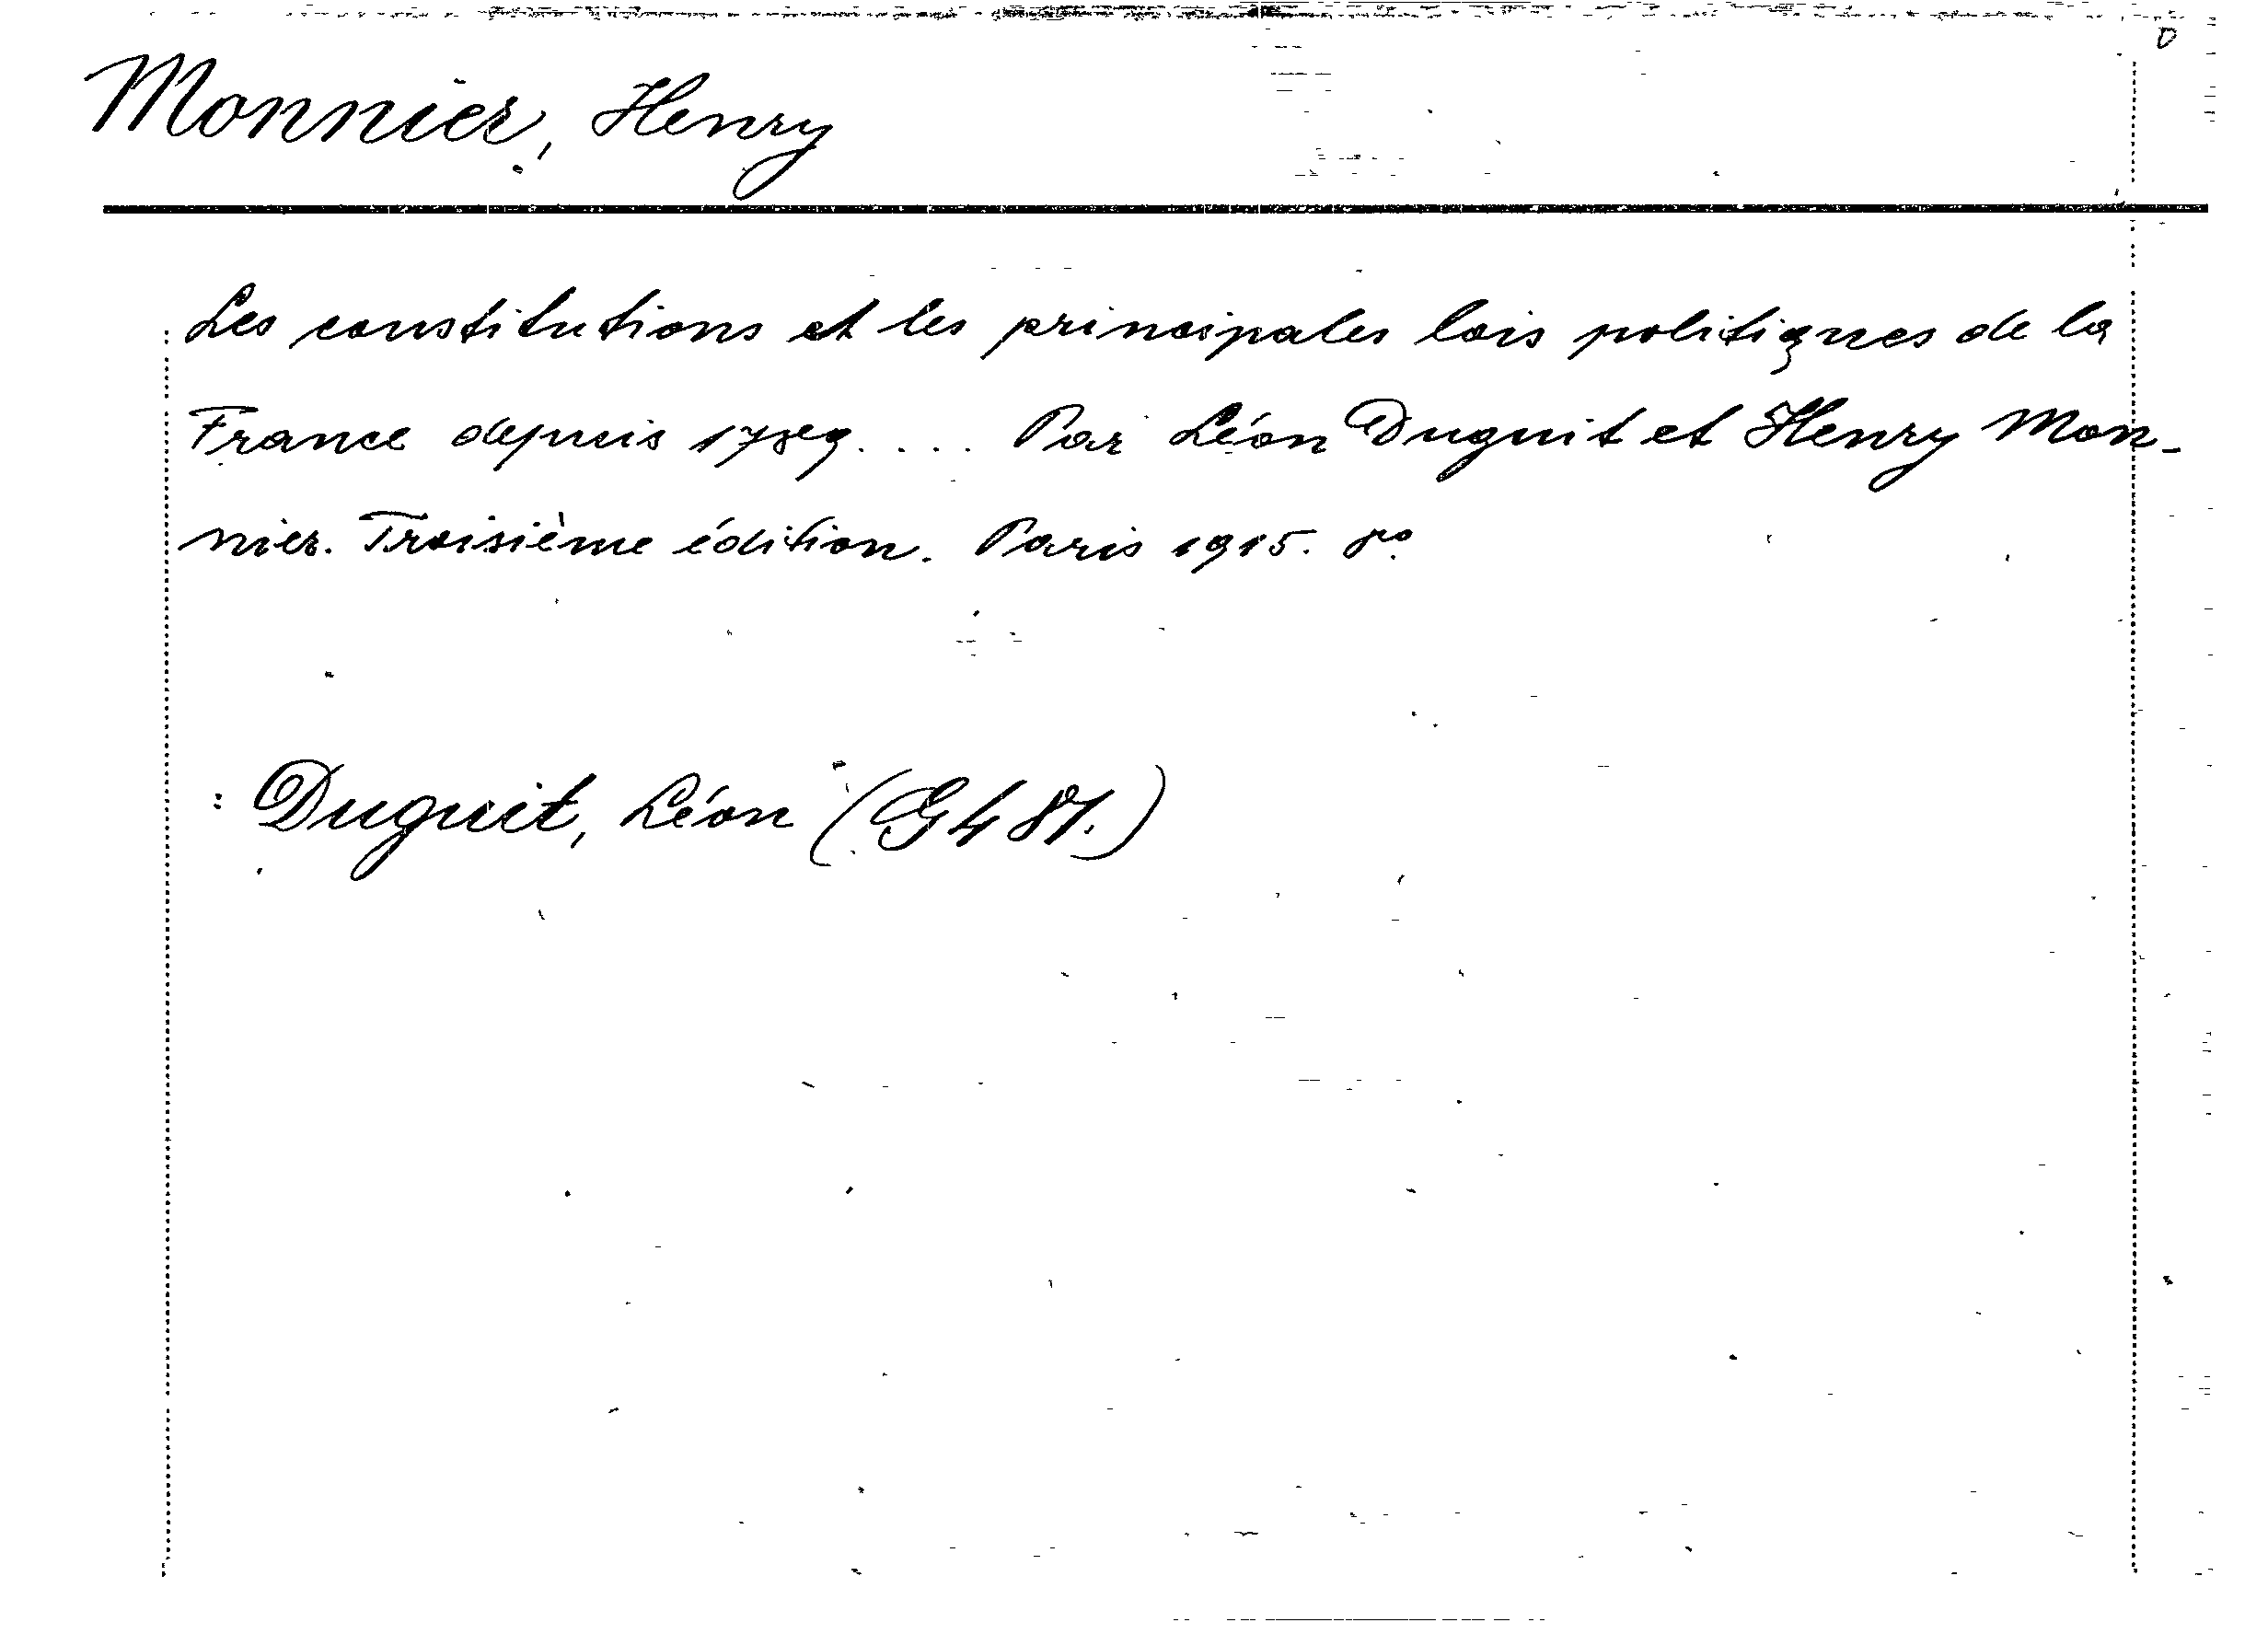 Monnier, Henry
Les constitutions et les principales lois politiques de la
France depuis 1789. ... Par Léon Duguit et Henry Mon-
nier. Troisième édition. Paris 1915. 8:o
: Duguit, Léon (G 4 81.)